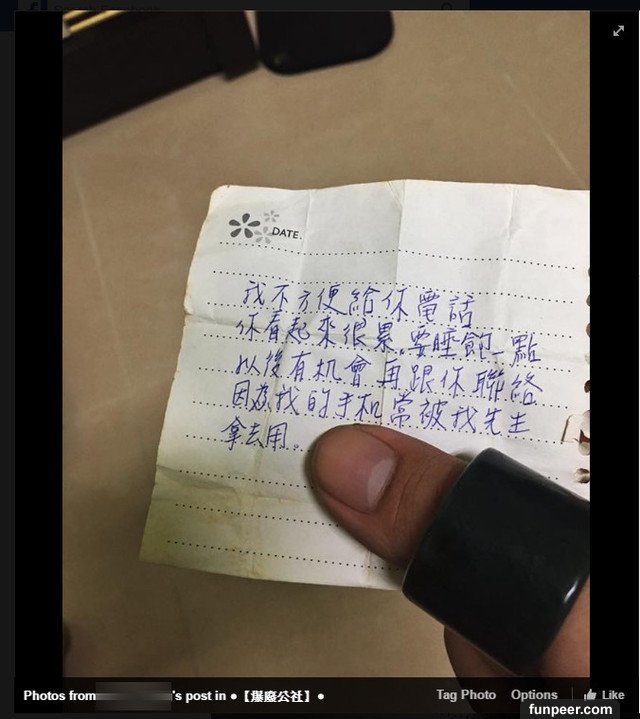 DATE.
我不方便給你電話
你看起來很累。要睡飽一點
以後有机會再跟你聯絡
因為我的手机常被我先生
拿去用。
Photos from 's post in ●【爆廢公社】●
Tag Photo Options Like
funpeer.com